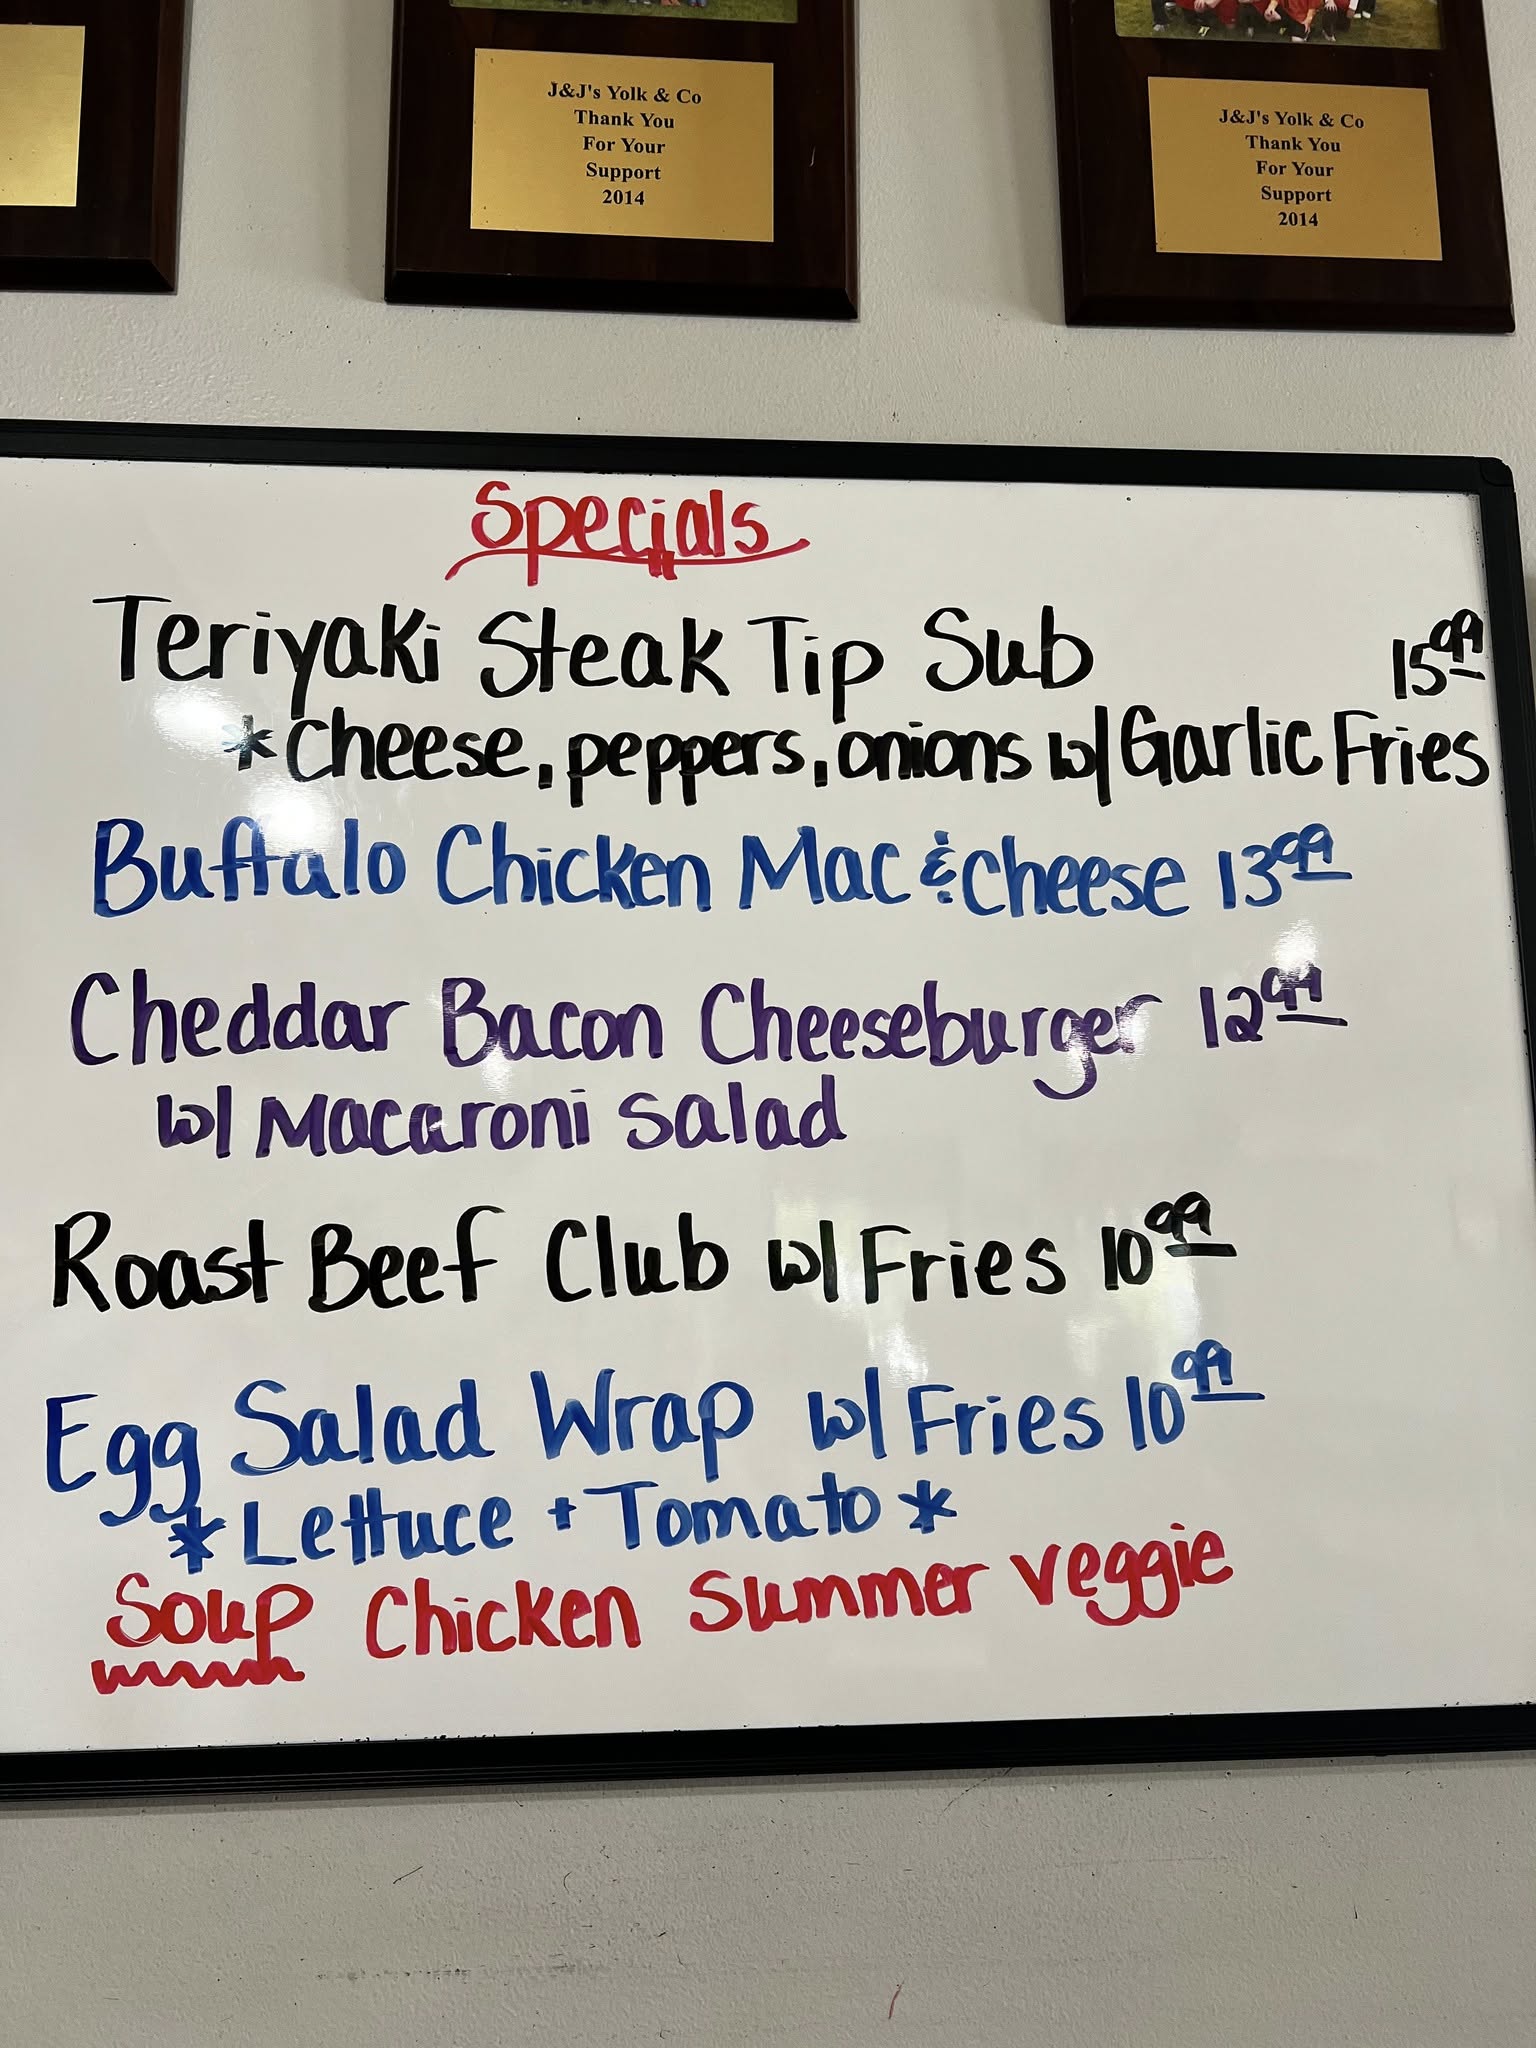 J&J's Yolk & Co
Thank You
For Your
Support
2014
J&J's Yolk & Co
Thank You
For Your
Support
2014
Specials
Teriyaki Steak Tip Sub 15.99
*Cheese, peppers, onions w/ Garlic Fries
Buffalo Chicken Mac & Cheese 13.99
Cheddar Bacon Cheeseburger 12.99
w/ Macaroni Salad
Roast Beef Club w/ Fries 10.99
Egg Salad Wrap w/ Fries 10.99
*Lettuce + Tomato*
Soup Chicken Summer Veggie